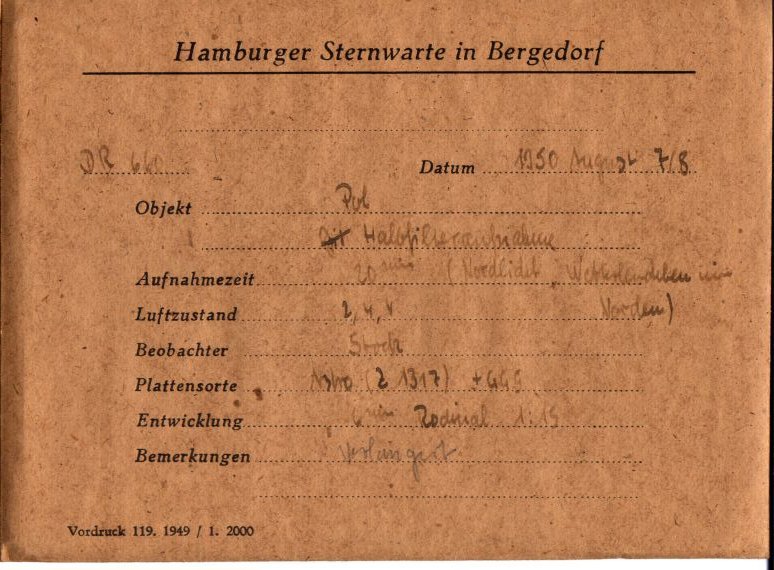 Hamburger Sternwarte in Bergedorf
DR 660 Datum 1950 August 7/8
Objekt Pol
Halbfilteraufnahme
Aufnahmezeit 20 min (Nordlicht, Wetterleuchten im
Luftzustand 2, 4, 4 Norden)
Beobachter Stock
Plattensorte Astro (Z 1317) + GG
Entwicklung 6 min Rodinal 1:15
Bemerkungen
Vordruck 119. 1949 / 1. 2000